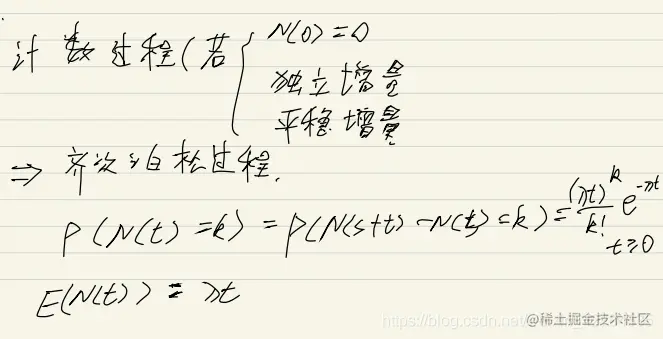 计数过程(若{N(0)=0
独立增量
平稳增量
⇒ 齐次泊松过程.
P(N(t)=k) = P(N(s+t)-N(t)=k) = (λt)^k/k! e^{-λt}
t≥0
E(N(t)) = λt
https://blog.csdn.net/
@稀土掘金技术社区